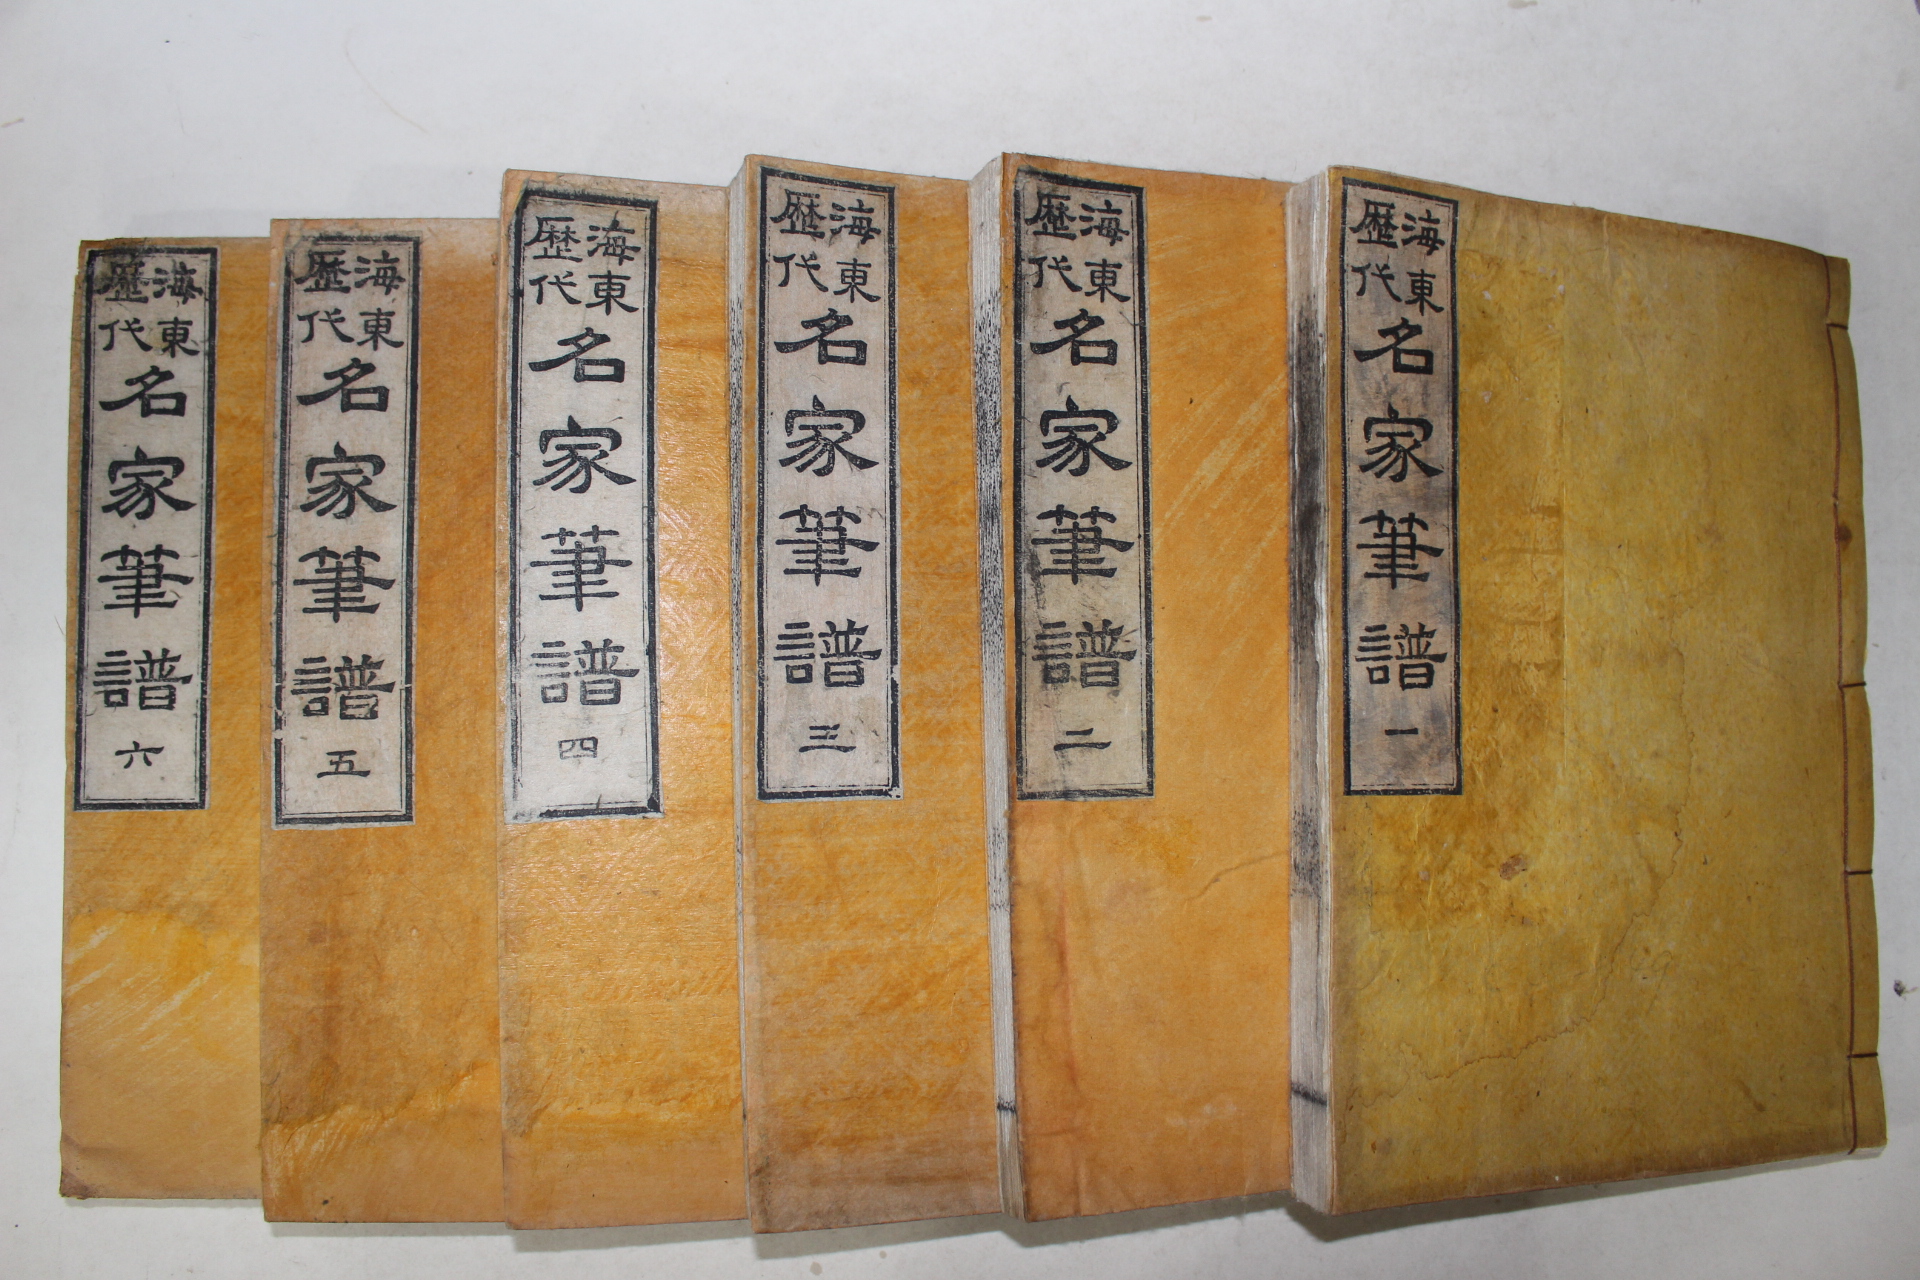 海東
歷代
名家筆譜 一
海東
歷代
名家筆譜 二
海東
歷代
名家筆譜 三
海東
歷代
名家筆譜 四
海東
歷代
名家筆譜 五
海東
歷代
名家筆譜 六